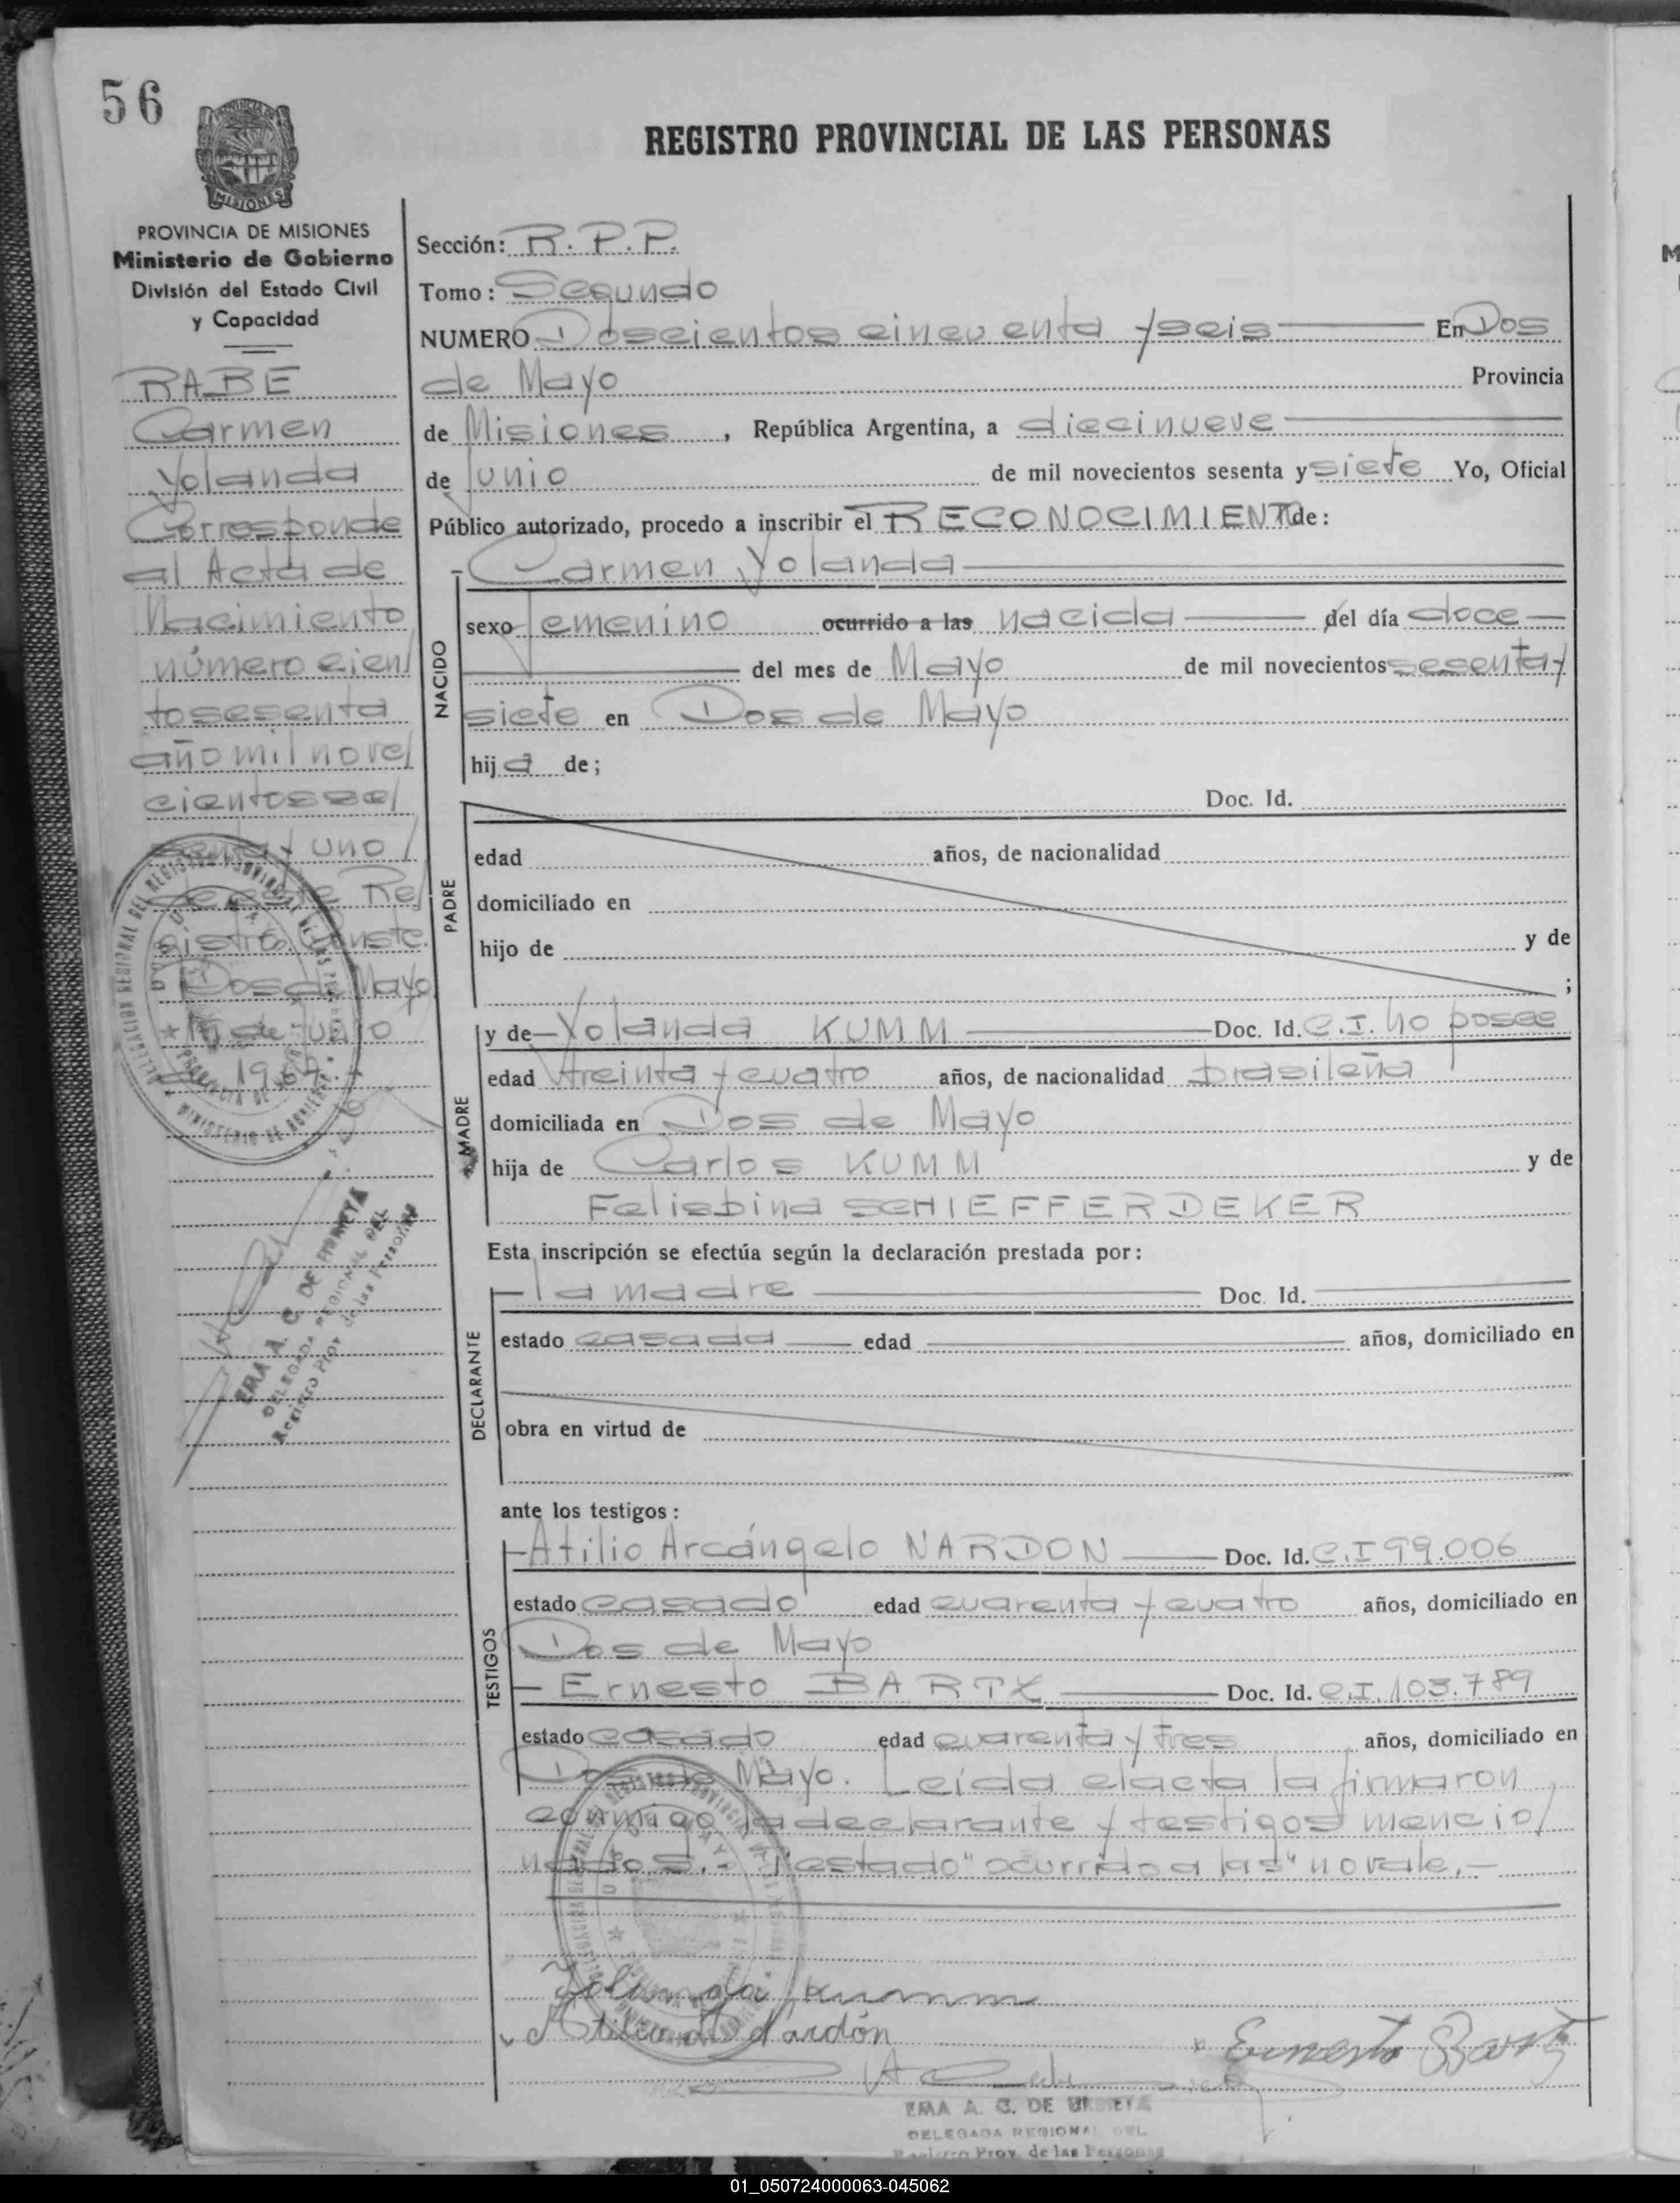 56
REGISTRO PROVINCIAL DE LAS PERSONAS
MISIONES
PROVINCIA DE MISIONES
Ministerio de Gobierno
División del Estado Civil
y Capacidad
RABE
Carmen
Yolanda
Corresponde
al Acta de
Nacimiento
número cien/
to sesenta
año mil nove/
cientos se/
senta y uno/
de este Re/
gistro. Conste.
Dos de Mayo
19 de junio
1967.
EMA A. C. DE URRIETA
DELEGADA REGIONAL DEL
Registro Prov. de las Personas
Sección: R.P.P.
Tomo: Segundo
NUMERO Doscientos cincuenta y seis En Dos
de Mayo Provincia
de Misiones, República Argentina, a diecinueve
de Junio de mil novecientos sesenta y siete Yo, Oficial
Público autorizado, procedo a inscribir el RECONOCIMIENTO de:
Carmen Yolanda
NACIDO
sexo femenino ocurrido a las nacida del día doce
del mes de Mayo de mil novecientos sesenta y
siete en Dos de Mayo
hija de;
PADRE
Doc. Id.
edad años, de nacionalidad
domiciliado en
hijo de y de
;
MADRE
y de Yolanda KUMM Doc. Id. C.I. no posee
edad treinta y cuatro años, de nacionalidad brasileña
domiciliada en Dos de Mayo
hija de Carlos KUMM y de
Felisbina SCHIEFFERDEKER
Esta inscripción se efectúa según la declaración prestada por:
DECLARANTE
la madre Doc. Id.
estado casada edad años, domiciliado en
obra en virtud de
ante los testigos:
TESTIGOS
Atilio Arcángelo NARDON Doc. Id. C.I 99.006
estado casado edad cuarenta y cuatro años, domiciliado en
Dos de Mayo
Ernesto BARTX Doc. Id. C.I. 103.789
estado casado edad cuarenta y tres años, domiciliado en
Dos de Mayo. Leída el acta la firmaron
conmigo la declarante y testigos mencio/
nados.- Testado "ocurrido a las" no vale.-
Yolanda Kumm
Atilio A. Nardón
Ernesto Bartz
EMA A. C. DE URRIETA
DELEGADA REGIONAL DEL
Registro Prov. de las Personas
01_050724000063-045062